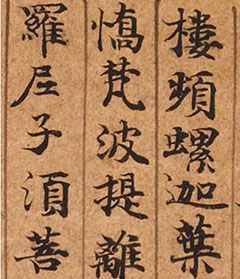 樓頻螺迦葉
憍梵波提離
羅尼子湏菩